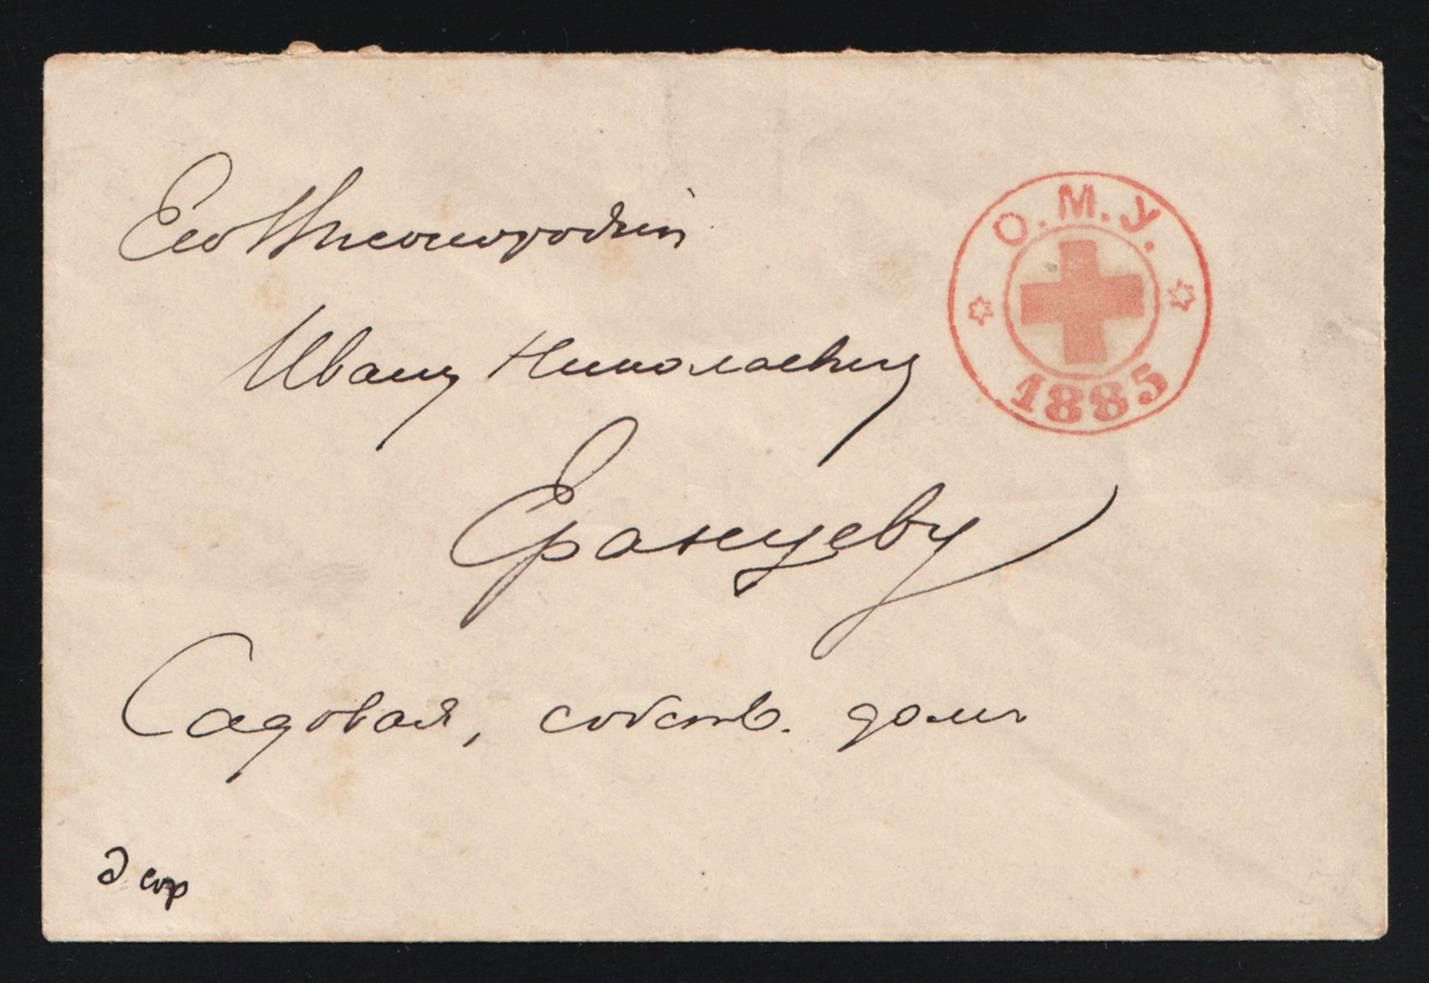 Его Высокородію
О. М. У.
Ивану Николаевичу
1885
Еранцеву
Садовая, собств. домъ